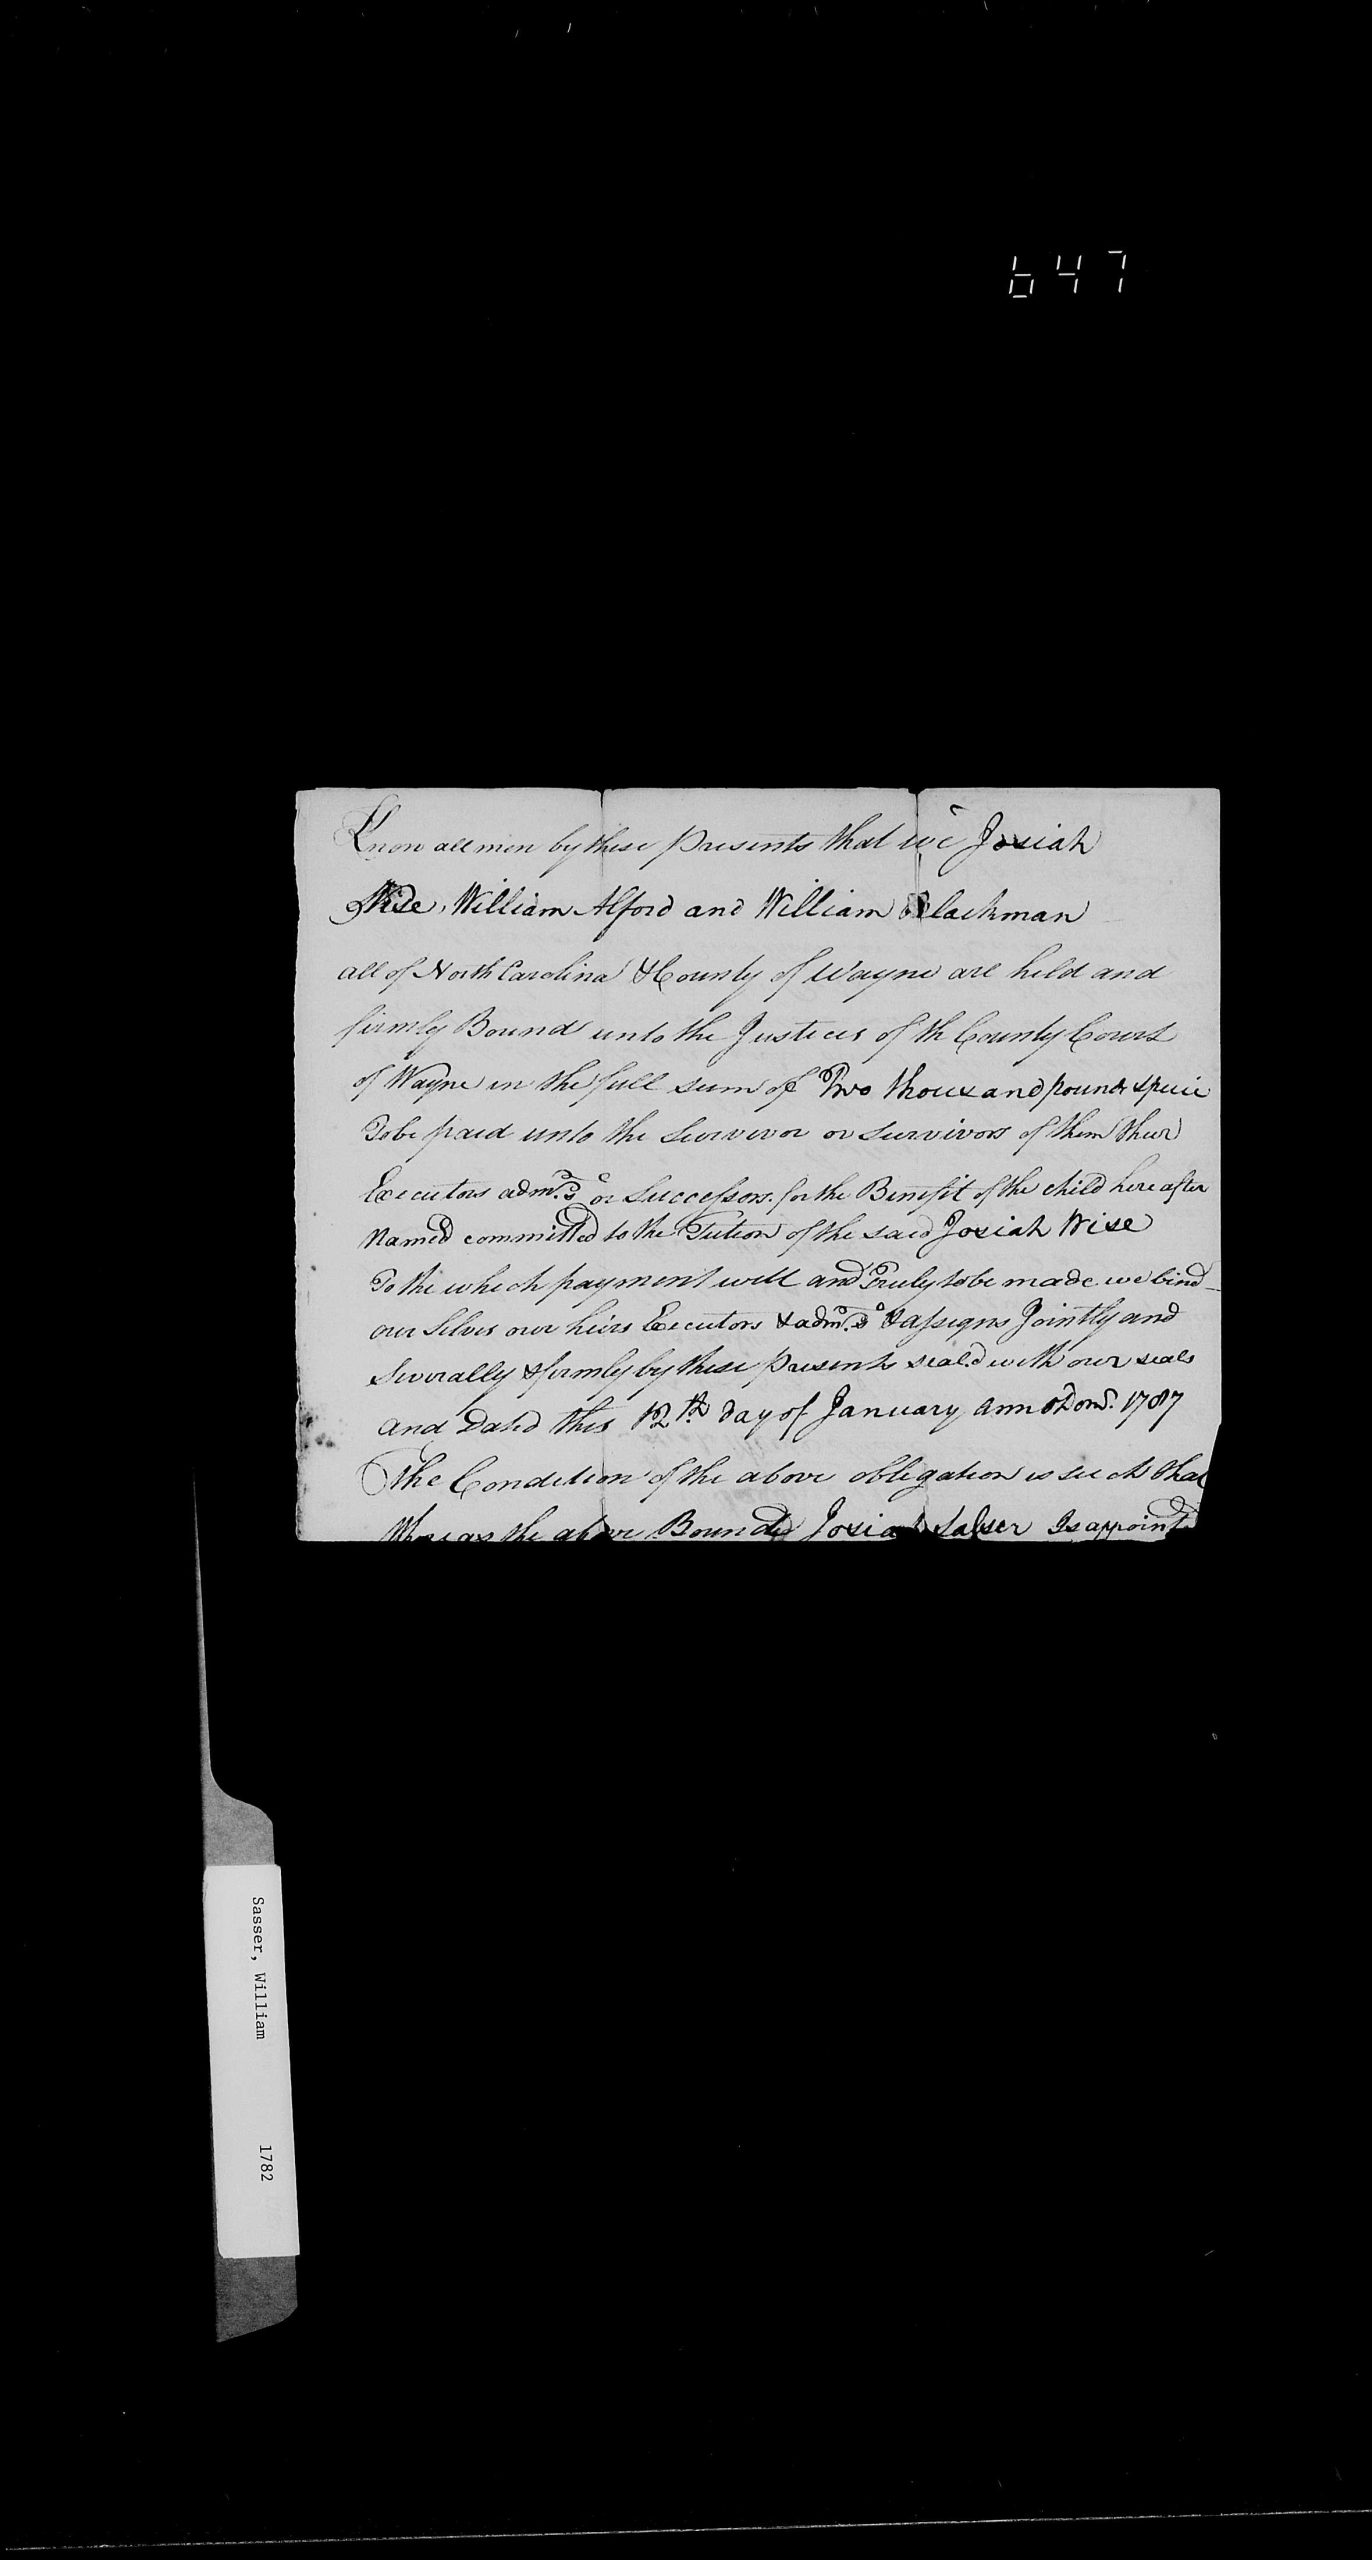 647
Know all men by these presents that we Josiah
Wise, William Alford and William Blackman
all of North Carolina & County of Wayne are held and
firmly Bound unto the Justices of th County Court
of Wayne in the full sum of Two thousand pounds specie
To be paid unto the Survivor or survivors of them their
Executors admrs. or Successors. for the Benefit of the child here after
Named committed to the Tution of the said Josiah Wise
To the which payment well and Truly to be made we bind
our Selves our heirs Executors & admrs. & assigns Jointly and
Severally & firmly by these presents seal.d with our seals
and Dated this 12th day of January anno Dom. 1787
The Condition of the above obligation is such that
Whereas the above Bounded Josiah Sasser Is appoint
Sasser, William 1782